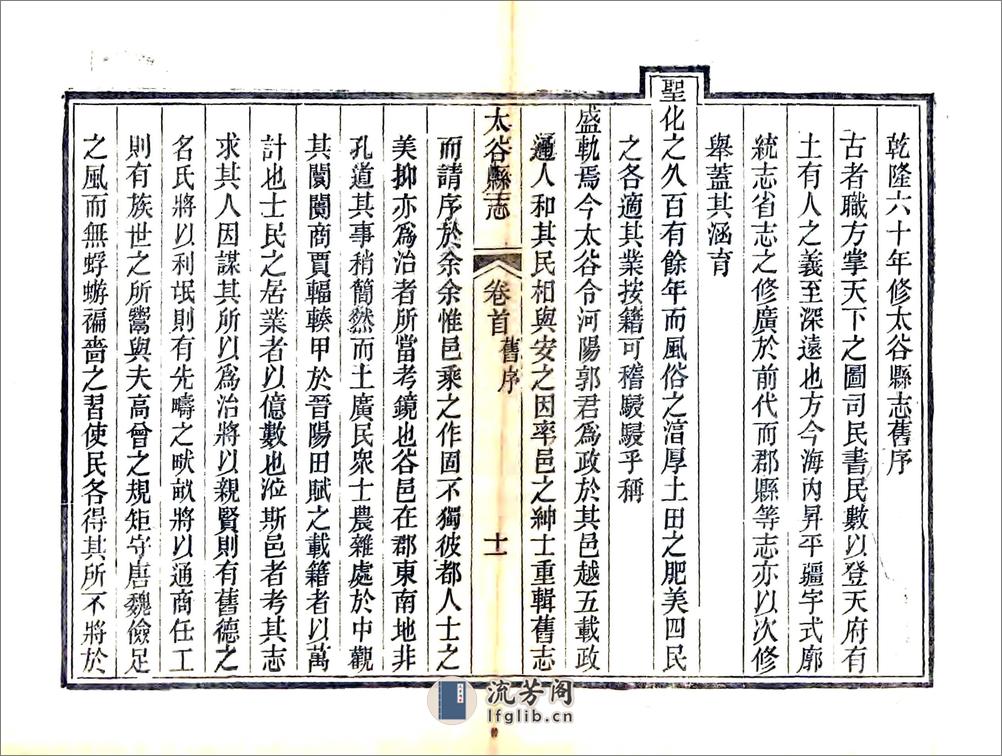 乾隆六十年修太谷縣志舊序
古者職方掌天下之圖司民書民數以登天府有
土有人之義至深遠也方今海內昇平疆宇式廓
統志省志之修廣於前代而郡縣等志亦以次修
舉蓋其涵育
聖化之久百有餘年而風俗之湻厚土田之肥美四民
之各適其業按籍可稽駸駸乎稱
盛軌焉今太谷令河陽郭君為政於其邑越五載政
通人和其民相與安之因率邑之紳士重輯舊志
太谷縣志 卷首 舊序 十一
而請序於余余惟邑乘之作固不獨彼都人士之
美抑亦為治者所當考鏡也谷邑在郡東南地非
孔道其事稍簡然而土廣民眾士農雜處於中觀
其闤闠商賈輻輳甲於晉陽田賦之載籍者以萬
計也士民之居業者以億數也涖斯邑者考其志
求其人因謀其所以為治將以親賢則有舊德之
名氏將以利氓則有先疇之畎畝將以通商任工
則有族世之所鬻與夫高曾之規矩守唐魏儉足
之風而無蜉蝣褊嗇之習使民各得其所不將於
流芳閣
lfglib.cn